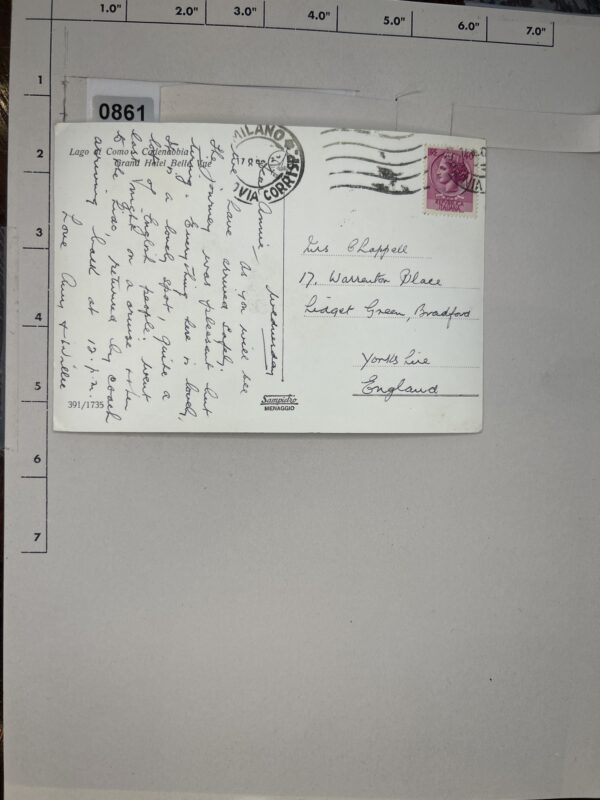 1.0"
2.0"
3.0"
4.0"
5.0"
6.0"
7.0"
1
2
3
4
5
6
7
0861
Lago di Como - Cadenabbia
Grand Hotel Belle Vue
MILANO
VIA CORRISP
Wednesday
Dear Annie, As you will see
we have arrived safely.
The journey was pleasant but
tiring. Everything here is lovely,
it's a lovely spot, quite a
lot of English people. Went
last night on a cruise
to the Lido, returned by coach
arriving back at 12.p.m.
Love Amy & Willie
Mrs Chappell
17, Warrenton Place
Lidget Green, Bradford
Yorkshire
England
Sampietro
MENAGGIO
391/1735